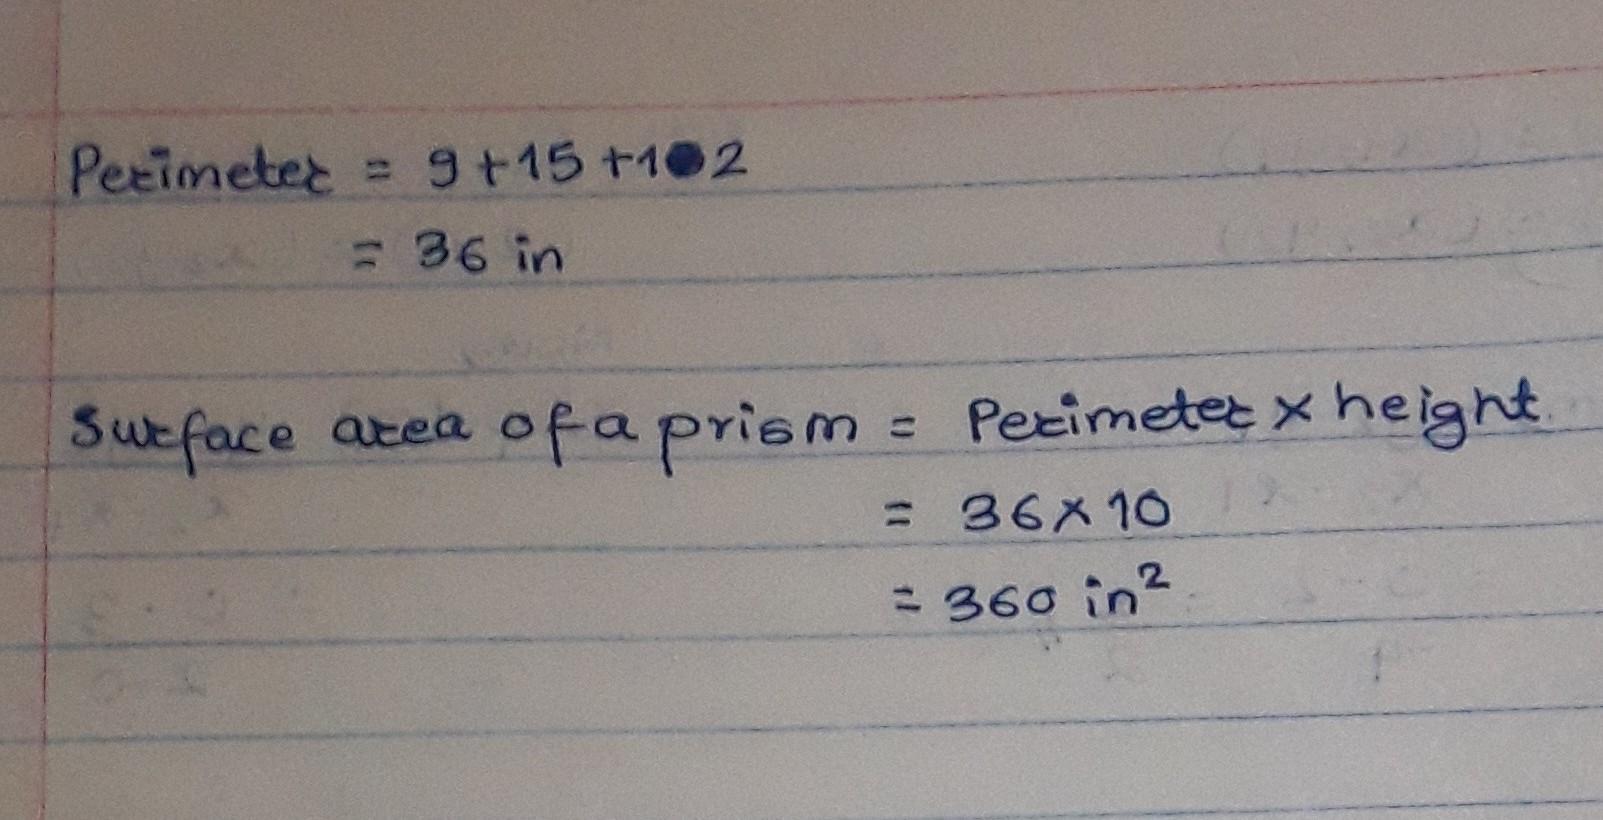 Perimeter = 9+15+12
= 36 in
Surface area of a prism = Perimeter × height.
= 36 × 10
= 360 in²